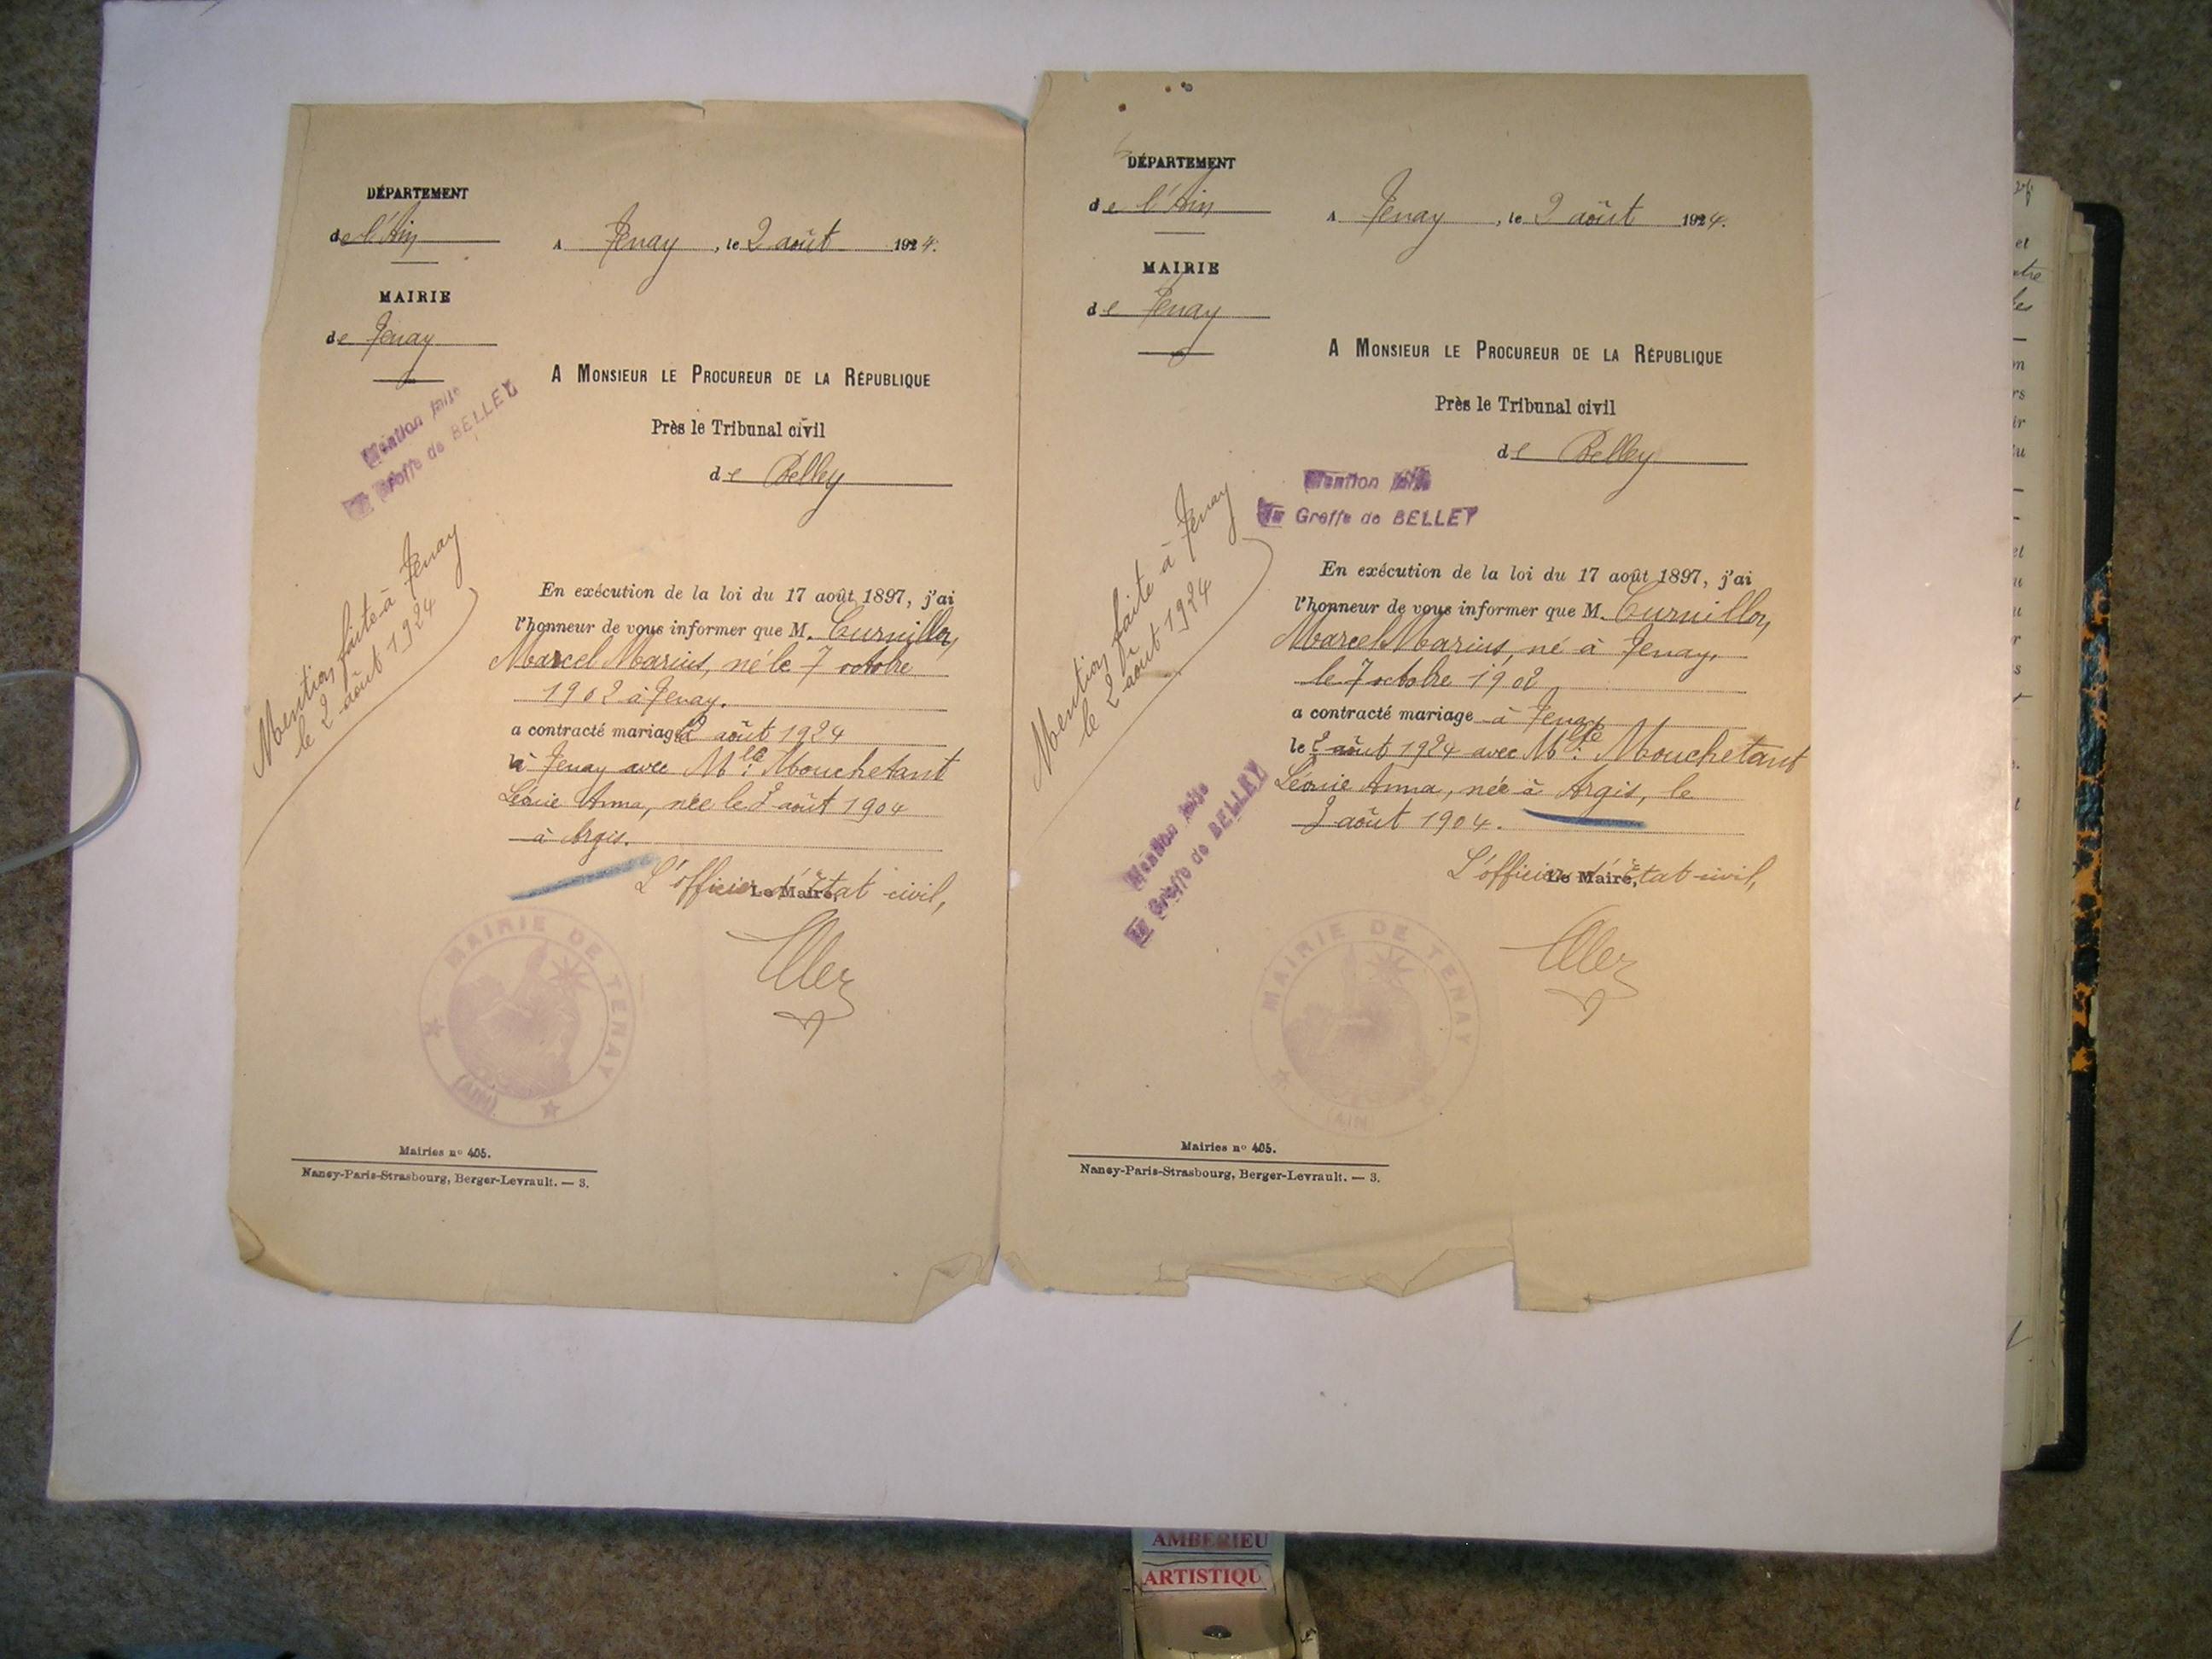 DÉPARTEMENT
de l'Ain
A Tenay, le 2 août 1924.
MAIRIE
de Tenay
A MONSIEUR LE PROCUREUR DE LA RÉPUBLIQUE
Près le Tribunal civil
de Belley
Mention faite
Au Greffe de BELLEY
Mention faite à Tenay
le 2 août 1924
En exécution de la loi du 17 août 1897, j'ai
l'honneur de vous informer que M. Curnillon
Marcel Marius, né le 7 octobre
1902 à Tenay.
a contracté mariage 2 août 1924
à Tenay avec Mlle Mouchetant
Léonie Anna, née le août 1904
à Argis.
L'officier d'État civil,
Le Maire,
MAIRIE DE TENAY
(AIN)
Mairies nº 405.
Nancy-Paris-Strasbourg, Berger-Levrault. — 3.
DÉPARTEMENT
de l'Ain
A Tenay, le 2 août 1924.
MAIRIE
de Tenay
A MONSIEUR LE PROCUREUR DE LA RÉPUBLIQUE
Près le Tribunal civil
de Belley
Mention faite
Au Greffe de BELLEY
Mention faite à Tenay
le 2 août 1924
En exécution de la loi du 17 août 1897, j'ai
l'honneur de vous informer que M. Curnillon,
Marcel Marius, né à Tenay,
le 7 octobre 1902
a contracté mariage à Tenay
le 2 août 1924 avec Mlle Mouchetant
Léonie Anna, née à Argis, le
août 1904.
Mention faite
Au Greffe de BELLEY
L'officier d'État civil,
Le Maire,
MAIRIE DE TENAY
(AIN)
Mairies nº 405.
Nancy-Paris-Strasbourg, Berger-Levrault. — 3.
AMBERIEU
ARTISTIQU